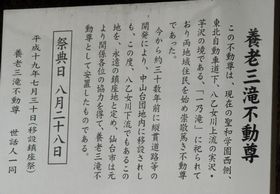 養老三滝不動尊
この不動尊は、現在の聖和学園西側、
東北自動車道下、八乙女川上流の実沢、
芋沢の境である、「一乃滝」に祀られて
おり両地域住民を始め崇敬篤き不動尊
であった。
今から約三十数年前に縦貫道路等の
開発により、中山台団地内に移設されし
も、この度、八乙女川下流でもあるこの
地を、永遠の鎮座地と定め、仙台市は元
より関係各位の協力を得て、養老三滝不
動尊として安置したものである。
祭典日 八月二十八日
平成十九年七月三十日(移設鎮座祭)
養老三滝不動尊 世話人一同